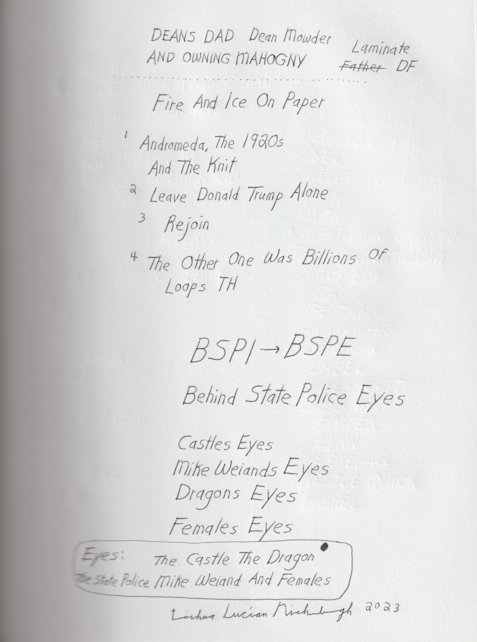 DEANS DAD Dean Mowder Laminate
AND OWNING MAHOGNY Father DF
Fire And Ice On Paper
1 Andromeda, The 1920s
And The Knit
2 Leave Donald Trump Alone
3 Rejoin
4 The Other One Was Billions Of
Loops TH
BSPI → BSPE
Behind State Police Eyes
Castles Eyes
Mike Weiands Eyes
Dragons Eyes
Females Eyes
Eyes: The Castle The Dragon
The State Police Mike Weiand And Females
Lucian 2023